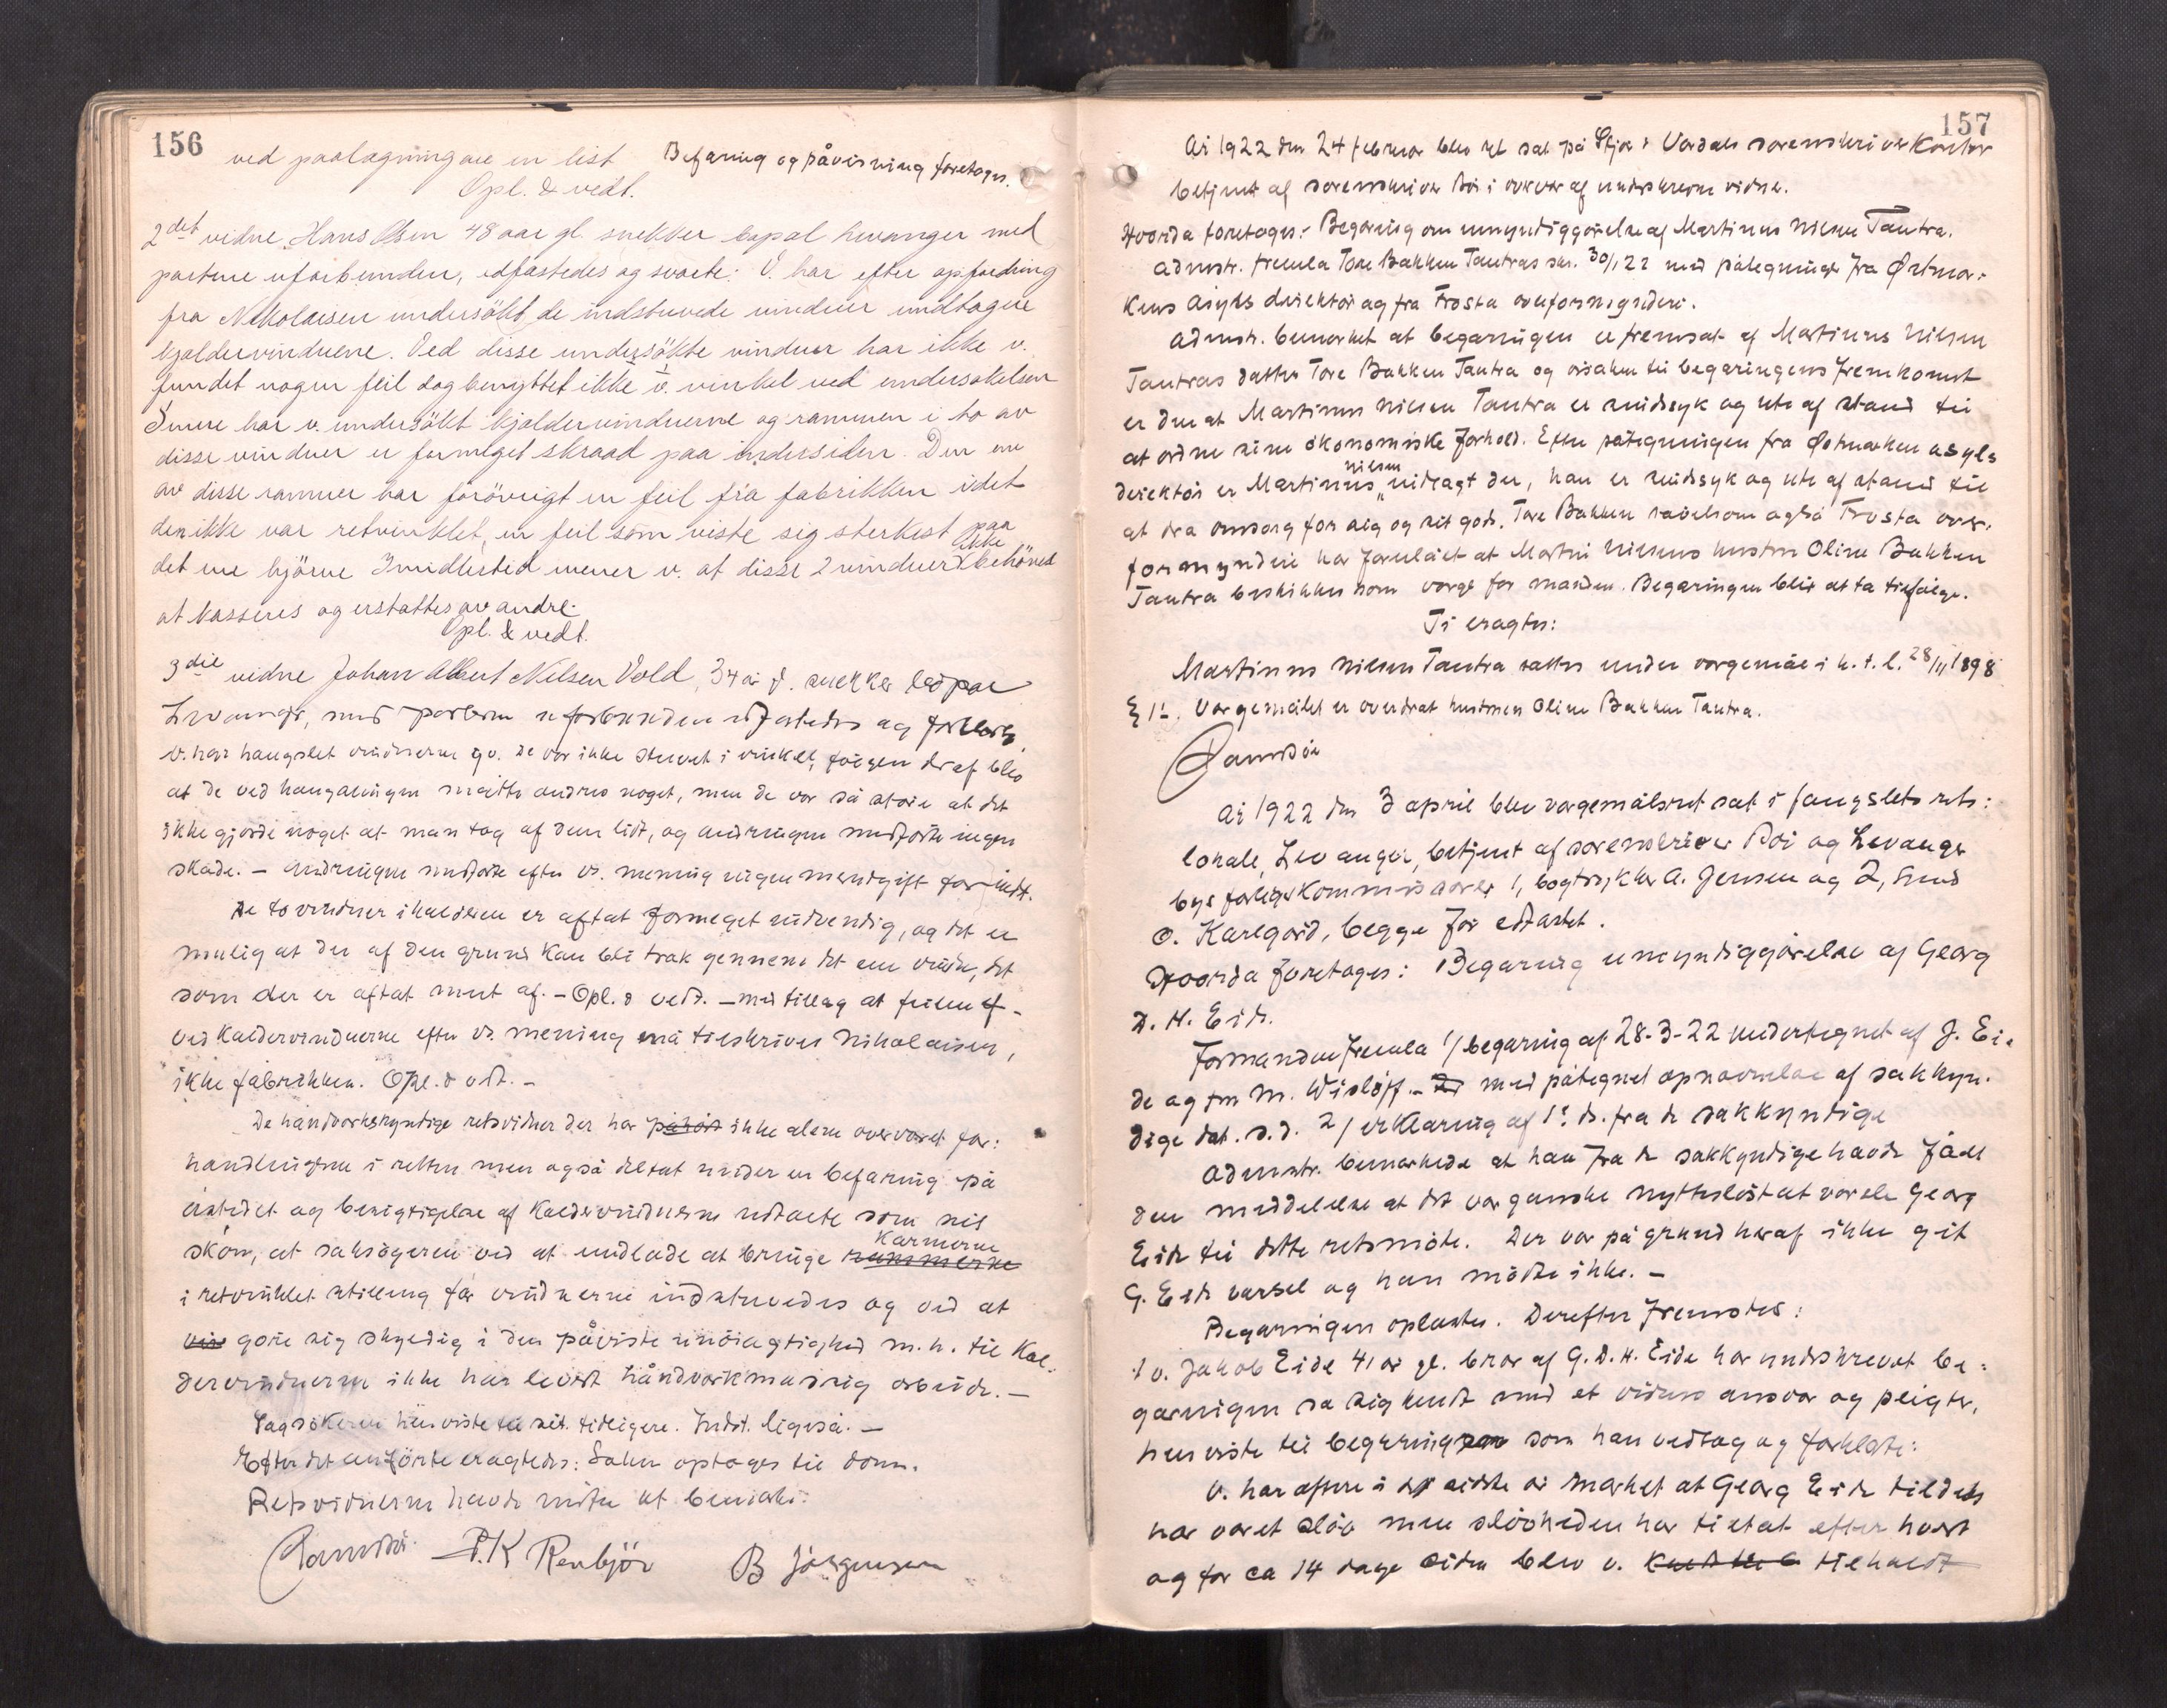 156
ved paalægning av en list Befaring og påvisning foretoges.
Opl. & vedt.
2det vidne Hans Olsen 48 aar gl. snekker bopæl Levanger med
partene uforbunden, edfæstedes og svarte: V. har efter opfordring
fra Nikolaisen undersökt de indstuvede vinduer undtagen
kjældervinduene. Ved disse undersökte vinduer har ikke v.
fundet nogen feil dog benyttet ikke v. vinkel ved undersökelsen
Senere har v. undersökt kjældervinduerne og rammen i to av
disse vinduer er formeget skraad paa indersiden. Den ene
av disse rammer har forövrigt en feil fra fabrikken idet
den ikke var retvinklet, en feil som viste sig sterkest paa
det ene hjörne Imidlertid mener v. at disse 2 vinduer ikke behöved
at kasseres og erstattes av andre.
Opl. & vedt.
3die vidne Johan Albert Nilsen Vold, 34 år g. snekker bopæl
Levanger, med parterne uforbunden edfæstedes og forklarte
V. har hængslet vinduerne og de var ikke stuvet i vinkel, følgen deraf blev
at de ved hængslingen måtte ændres noget, men de var så store at det
ikke gjorde noget at man tog af dem lidt, og ændringen medførte ingen
skade. - Ændringen medførte efter vs. mening ingen merutgift for indst.
De to vinduer i kælderen er aftat formeget utvendig, og det er
mulig at der af den grund kan bli træk gennem det ene vindu, det
som der er aftat mest af. - Opl. & vedt. - med tillæg at feilen
ved kældervinduerne efter vs. mening må tilskrives Nikolaisen,
ikke fabrikken. Opl. & vedt. -
De håndverkskyndige retsvidner der har påhørt ikke alene overværet for:
handlingerne i retten men også deltat under en befaring på
åstedet og besigtigelse af kældervinduerne uttalte som sit
skøn, at saksøgeren ved at undlade at bringe rammerne karmerne
i retvinklet stilling før vinduerne indstuvedes og ved at
vis gøre sig skyldig i den påviste unøiagtighed m.h. til kæl-
dervinduerne ikke har levert håndverkmæssig arbeide. -
Sagsøkeren henviste til sit tidligere. Indst. ligeså. -
Efter det anførte eragtedes: Saken optages til dom.
Retsvidnerne havde intet at bemærke.
P.K Renbjör B Jörgensen
157
År 1922 den 24 februar blev ret sat på Stjør & Værdals sorenskriverkontor
betjent af sorenskriver Bøi i overvær af underskrevne vidner.
Hvorda foretoges: Begæring om umyndiggjørelse af Martinus Nilsen Tautra.
Admstr. fremla Tore Bakken Tautras skr. 30/1 22 med påtegninger fra Østmar-
kens asyls direktør og fra Frosta overformynderi.
Admstr. bemærket at begæringen er fremsat af Martinus Nilsen
Tautras datter Tore Bakken Tautra og årsaken til begæringens fremkomst
er den at Martinus Nilsen Tautra er sindssyk og ute af stand til
at ordne sine økonomiske forhold. Efter påtegningen fra Østmarken asyls
direktør er Martinus Nilsen indlagt der, han er sindssyk og ute af stand til
at dra omsorg for sig og sit gods. Tore Bakken såvelsom også Frosta over-
formynderi har foreslået at Martin Nilsens hustru Oline Bakken
Tautra beskikkes som værge for manden. Begæringen blir at ta tilfølge.
Ti eragtes:
Martinus Nilsen Tautra sættes under værgemål i h. t. l. 28/11 1898
§ 1. Værgemålet er overdrat hustruen Oline Bakken Tautra.
År 1922 den 3 april blev værgemålsret sat i fængslets rets:
lokale, Levanger, betjent af sorenskriver Bøi og Levanger
bys forligskommissærer 1, bogtrykker A. Jensen og 2, Smed
O. Karegård, begge før edfæstet.
Hvorda foretoges: Begæring umyndiggjørelse af Georg
D. H. Eide.
Formanden fremla 1/ begæring af 28-3-22 undertegnet af J. Ei-
de og frn M. Wisløff. - med påtegnet opnævnelse af sakkyn-
dige dat. s.d. 2/ erklæring af 1. ds. fra de sakkyndige
Admstr. bemærkede at han fra de sakkyndige havde fåt
den meddelelse at det var ganske nytteløst at varsle Georg
Eide til dette retsmøte. Der var på grund heraf ikke git
G. Eide varsel og han mødte ikke. -
Begæringen oplæstes. Derefter fremstod:
1 v. Jakob Eide 41 år gl. bror af G. D. H. Eide har underskrevet be-
gæringen sa sig kendt med et vidnes ansvar og pligter,
henviste til begæringen som han vedtog og forklarte:
V. har oftere i de sidste år mærket at Georg Eide tildels
har været sløv men sløvheden har tiltat efter hvert
og for ca 14 dage siden blev v. tilkaldt